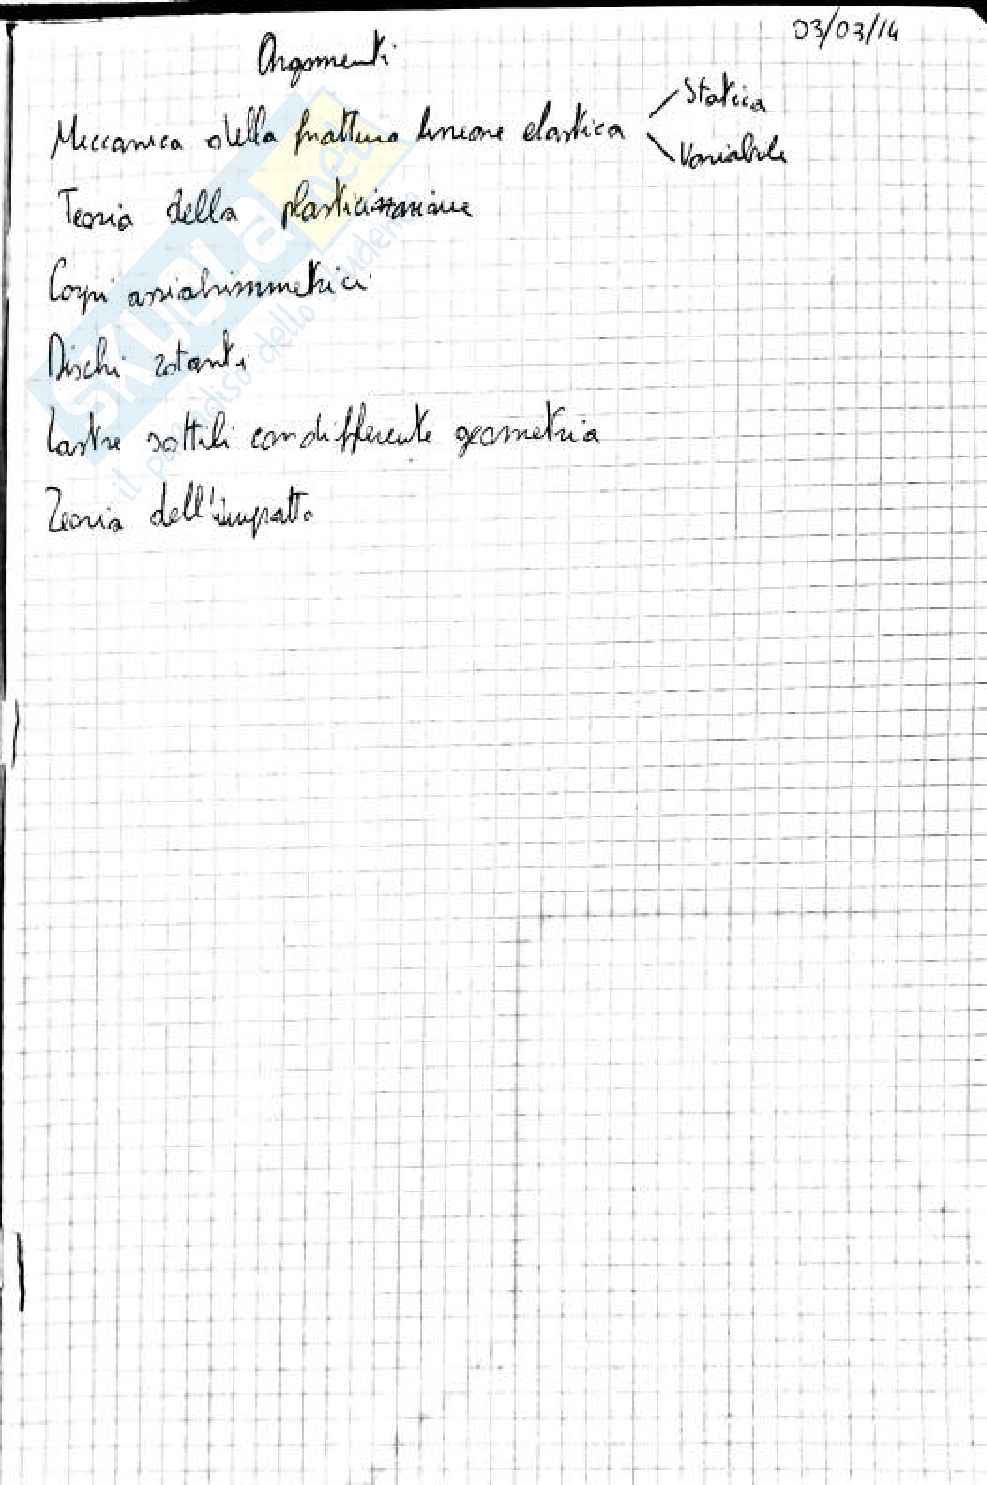 03/03/14
Argomenti
Meccanica della frattura lineare elastica
Statica
Variabile
Teoria della plasticizzazione
Corpi assialsimmetrici
Dischi rotanti
Lastre sottili con differente geometria
Teoria dell'impatto
SKUOLA.net
il paradiso dello studente